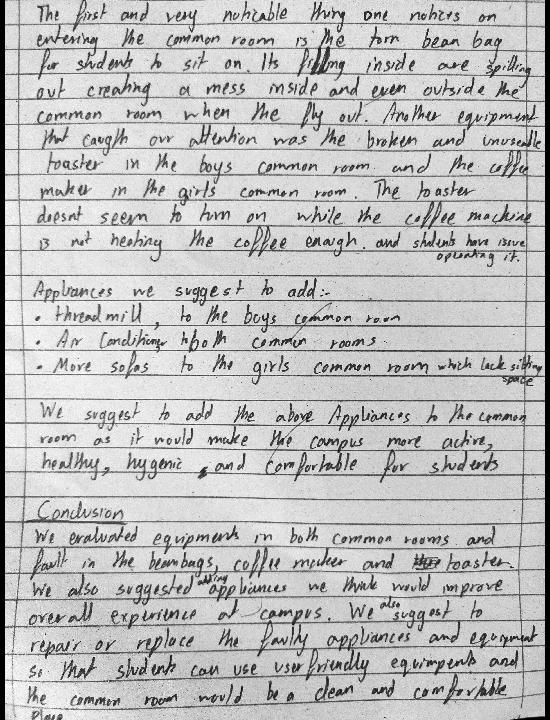 The first and very noticable thing one notices on
entering the common room is the torn bean bag
for students to sit on. Its filling inside are spilling
out creating a mess inside and even outside the
common room when the fly out. Another equipment
that caugth our attention was the broken and unuseable
toaster in the boys common room and the coffee
maker in the girls common room. The toaster
doesnt seem to turn on while the coffee machine
is not heating the coffee enough. and students have issue
operating it.
Appliances we suggest to add:-
• threadmill, to the boys common room
• Air Conditioner, to both common rooms.
• More sofas to the girls common room which lack sitting
space
We suggest to add the above Appliances to the common
room as it would make the campus more active,
healthy, hygenic, and comfortable for students
Conclusion
We evaluated equipments in both common rooms and
fault in the beambags, coffee maker and toaster.
We also suggested adding appliances we think would improve
overall experience at campus. We also suggest to
repair or replace the faulty appliances and equipment
so that students can use userfriendly equimpents and
the common room would be a clean and comfortable
place